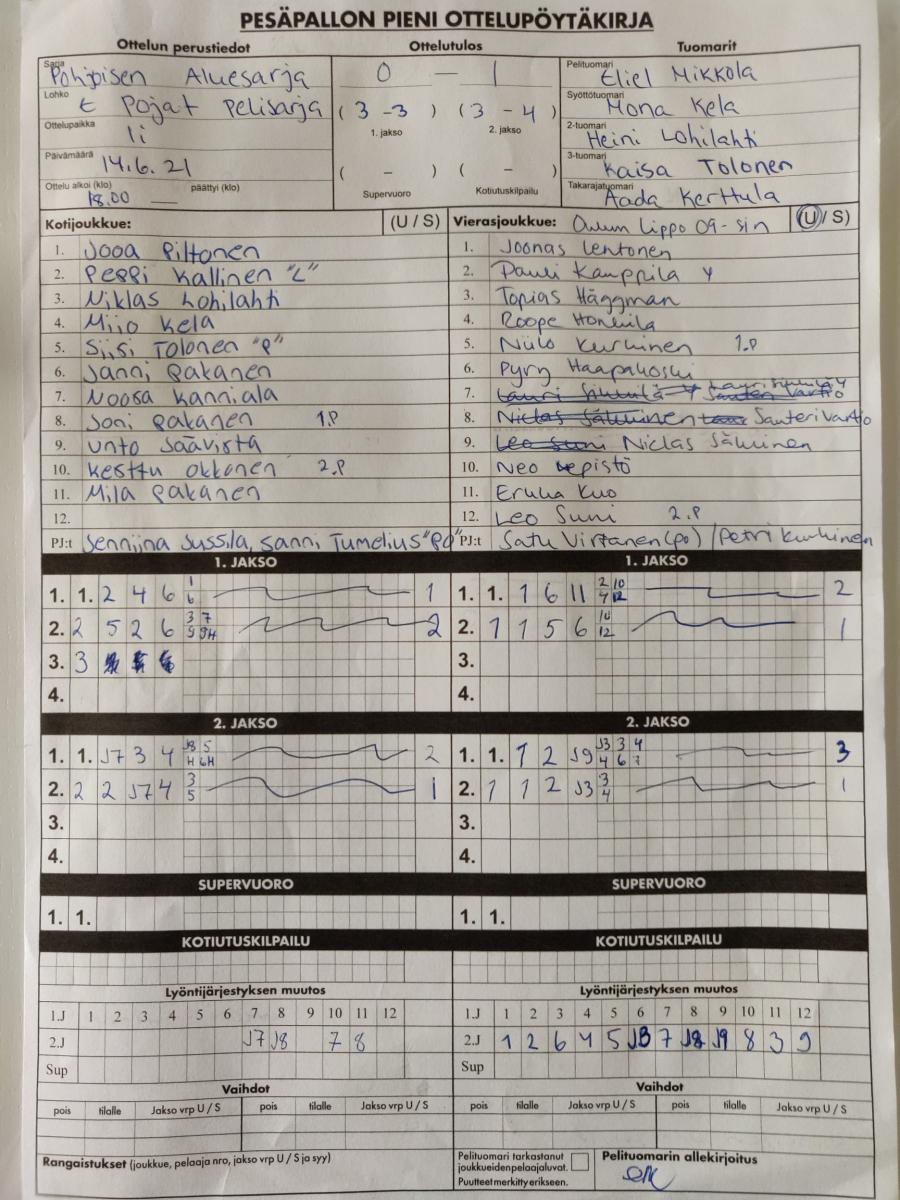 PESÄPALLON PIENI OTTELUPÖYTÄKIRJA
Ottelun perustiedot
Ottelutulos
Tuomarit
Sarja
Pohjoisen Aluesarja
Lohko
E Pojat Pelisarja
Ottelupaikka
Ii
Päivämäärä
14.6.21
Ottelu alkoi (klo) päättyi (klo)
18.00 __
0 — 1
( 3 - 3 ) ( 3 - 4 )
1. jakso 2. jakso
( - ) ( - )
Supervuoro Kotiutuskilpailu
Pelituomari
Eliel Mikkola
Syöttötuomari
Mona Kela
2-tuomari
Heini Lohilahti
3-tuomari
Kaisa Tolonen
Takarajatuomari
Aada Kerttula
Kotijoukkue: (U / S)
1. Jooa Piltonen
2. Peppi Kallinen "L"
3. Niklas Lohilahti
4. Miio Kela
5. Siisi Tolonen "P"
6. Janni Pakanen
7. Noosa Kanniala
8. Joni Pakanen 1.P
9. Unto Säävistä
10. Kerttu Okkonen 2.P
11. Mila Pakanen
12.
PJ:t Sennjina Jussila, Sanni Tumelius "PO"
Vierasjoukkue: Oulun Lippo 09-sin (U / S)
1. Joonas Lentonen
2. Pauli Kauppila Y
3. Topias Häggman
4. Roope Honkila
5. Niilo Kurkinen 1.P
6. Pyry Haapakoski
7.
8. Santeri Vartio
9. Leo Suni Niclas Säkkinen
10. Neo Lepistö
11. Erkka Kuo
12. Leo Suni 2.P
PJ:t Satu Virtanen (po) / Petri Kurkinen
1. JAKSO
1. 1. 2 4 6 1 6 1
2. 2 5 2 6 3 7 9 9H 2
3. 3
4.
1. JAKSO
1. 1. 1 6 11 2 10 4 12 2
2. 1 1 5 6 10 12 1
3.
4.
2. JAKSO
1. 1. J7 3 4 J8 5 H 6H 2
2. 2 2 J7 4 3 5 1
3.
4.
2. JAKSO
1. 1. 1 2 J9 J3 3 4 4 6 7 3
2. 1 1 2 J3 3 4 1
3.
4.
SUPERVUORO
1. 1.
SUPERVUORO
1. 1.
KOTIUTUSKILPAILU
KOTIUTUSKILPAILU
Lyöntijärjestyksen muutos
1.J 1 2 3 4 5 6 7 8 9 10 11 12
2.J J7 J8 7 8
Sup
Lyöntijärjestyksen muutos
1.J 1 2 3 4 5 6 7 8 9 10 11 12
2.J 1 2 6 4 5 J3 7 J8 J9 8 3 9
Sup
Vaihdot
pois tilalle Jakso vrp U / S pois tilalle Jakso vrp U / S
Vaihdot
pois tilalle Jakso vrp U / S pois tilalle Jakso vrp U / S
Rangaistukset (joukkue, pelaaja nro, jakso vrp U / S ja syy)
Pelituomari tarkastanut
joukkueiden pelaajaluvat.
Puutteet merkitty erikseen.
Pelituomarin allekirjoitus